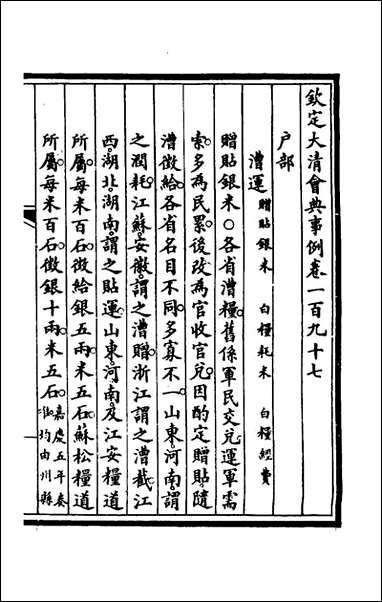 欽定大清會典事例卷一百九十七
戶部
漕運 贈貼銀米 白糧耗米 白糧經費
贈貼銀米○各省漕糧。舊係軍民交兌。運軍需
索。多為民累。後改為官收官兌。因酌定贈貼。隨
漕徵給。各省名目不同。多寡不一。山東河南。謂
之潤耗。江蘇安徽。謂之漕贈。浙江謂之漕截。江
西湖北湖南。謂之貼運。山東河南及江安糧道
所屬。每米百石。徵給銀五兩。米五石。蘇松糧道
所屬。每米百石。徵銀十兩。米五石。嘉慶五年奏准均由州縣